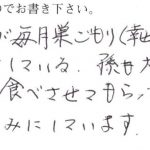 のでお書き下さい。
が毎月巣ごもり(幸
している。孫も大
食べさせてもらっ
みにしています。